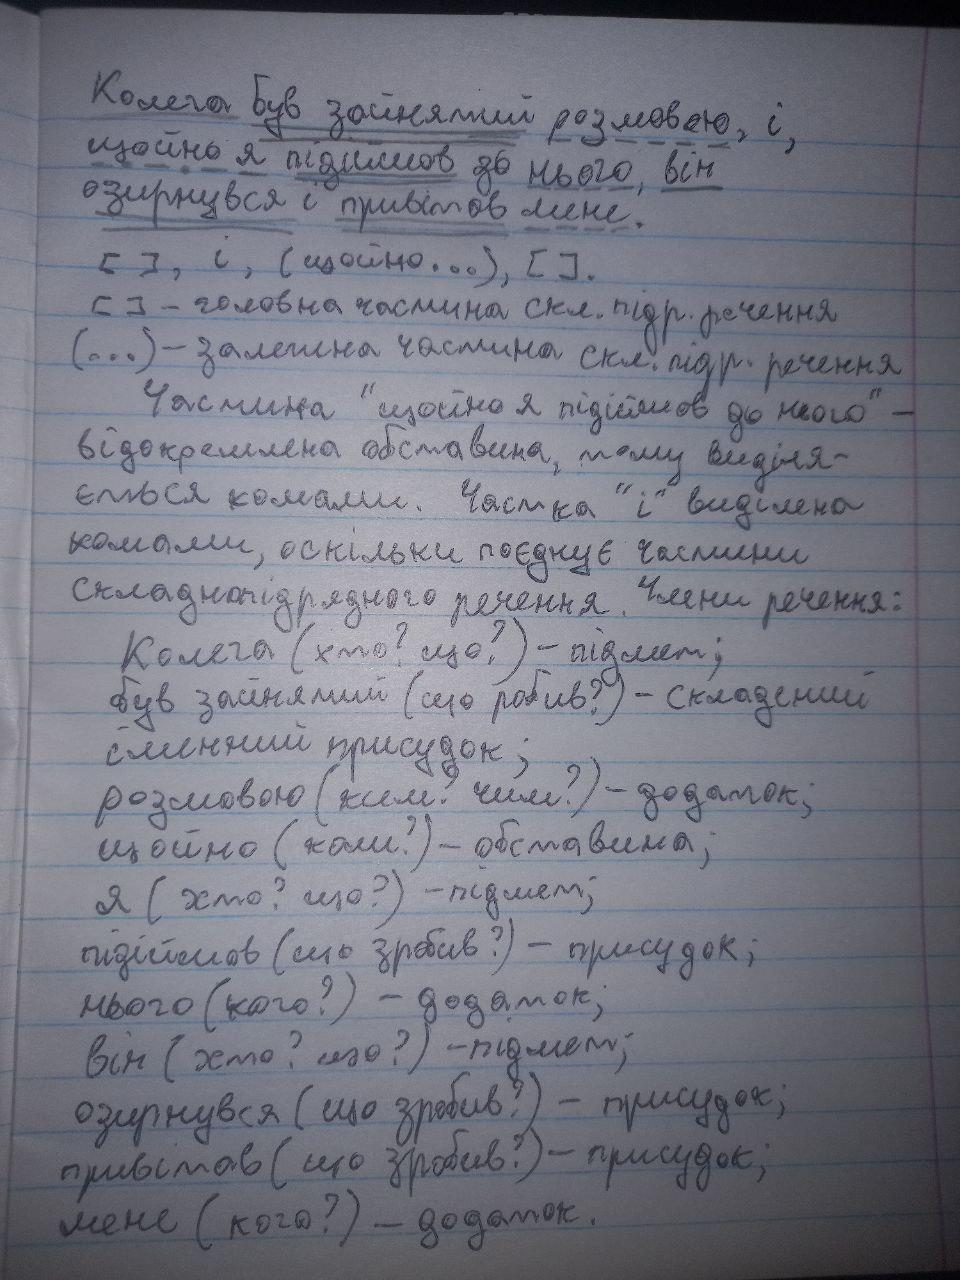 Колега був зайнятий розмовою, і,
щойно я підійшов до нього, він
озирнувся і привітав мене.
[ ], і, (щойно...), [ ].
[ ] – головна частина скл. підр. речення
(...) – залежна частина скл. підр. речення
Частина "щойно я підійшов до нього" –
відокремлена обставина, тому виділя-
ється комами. Частка "і" виділена
комами, оскільки поєднує частини
складнопідрядного речення. Члени речення:
Колега (хто? що?) – підмет;
був зайнятий (що робив?) – складений
іменний присудок;
розмовою (ким? чим?) – додаток;
щойно (коли?) – обставина;
я (хто? що?) – підмет;
підійшов (що зробив?) – присудок;
нього (кого?) – додаток;
він (хто? що?) – підмет;
озирнувся (що зробив?) – присудок;
привітав (що зробив?) – присудок;
мене (кого?) – додаток.